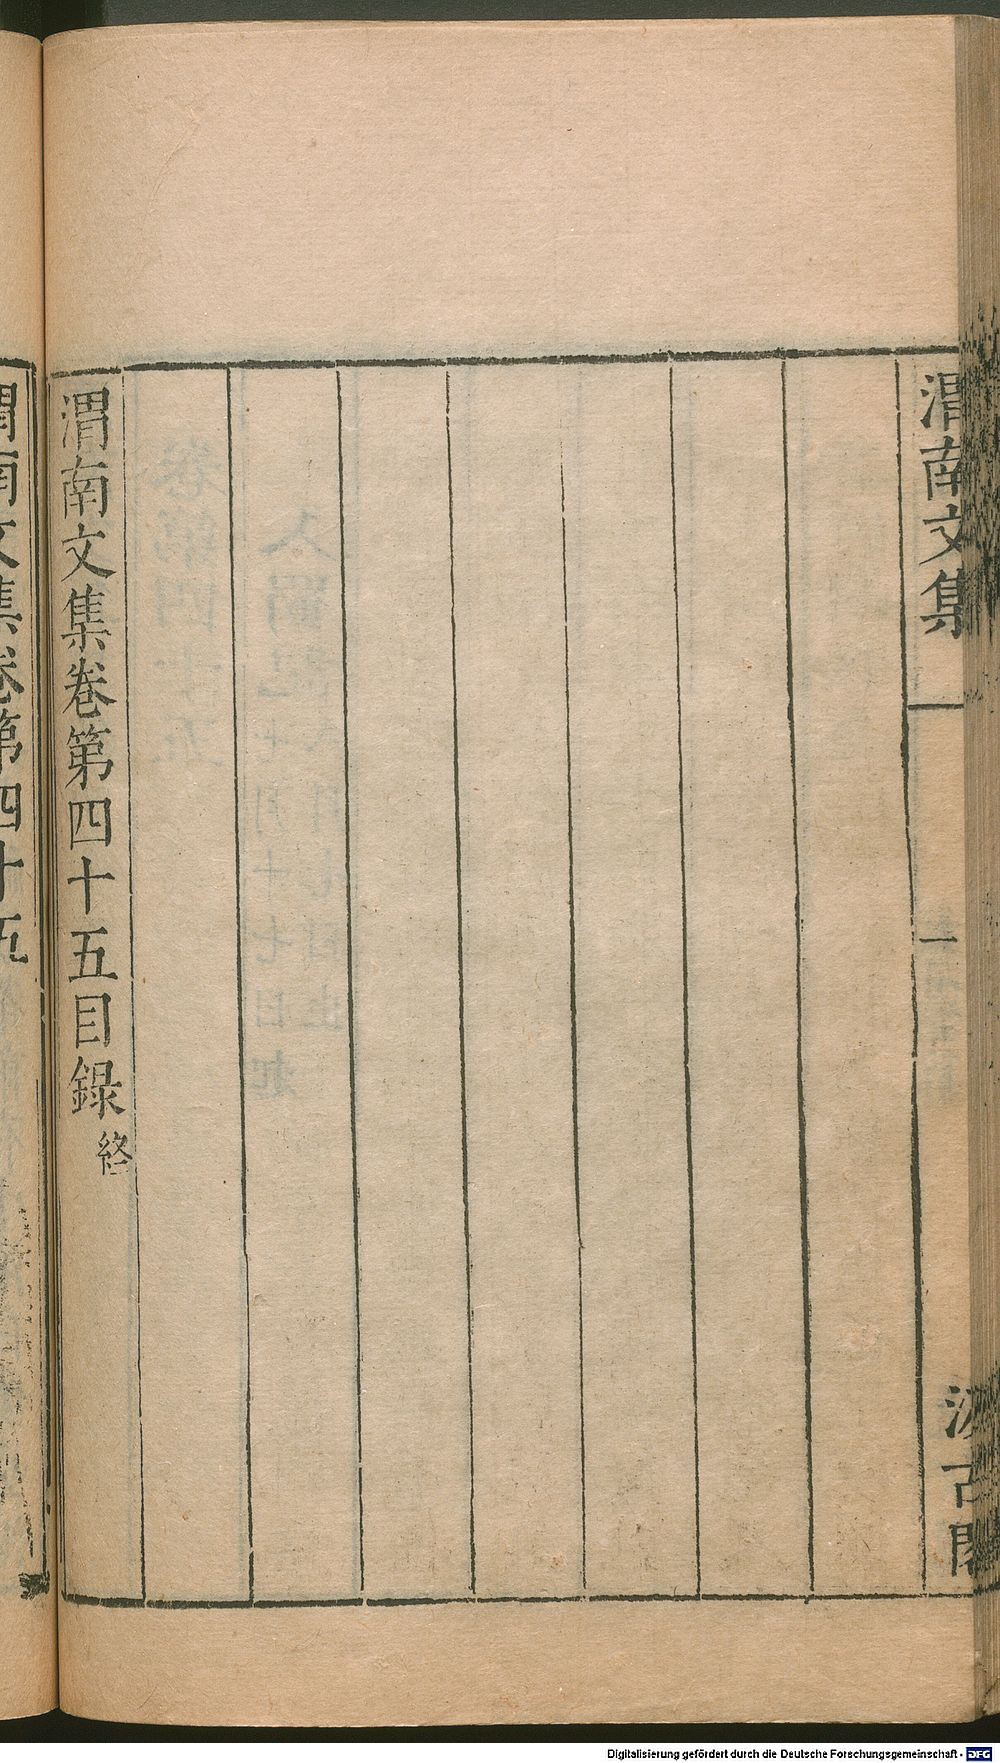 渭南文集
一
汲古閣
渭南文集卷第四十五目録終
渭南文集卷第四十五
Digitalisierung gefördert durch die Deutsche Forschungsgemeinschaft - DFG